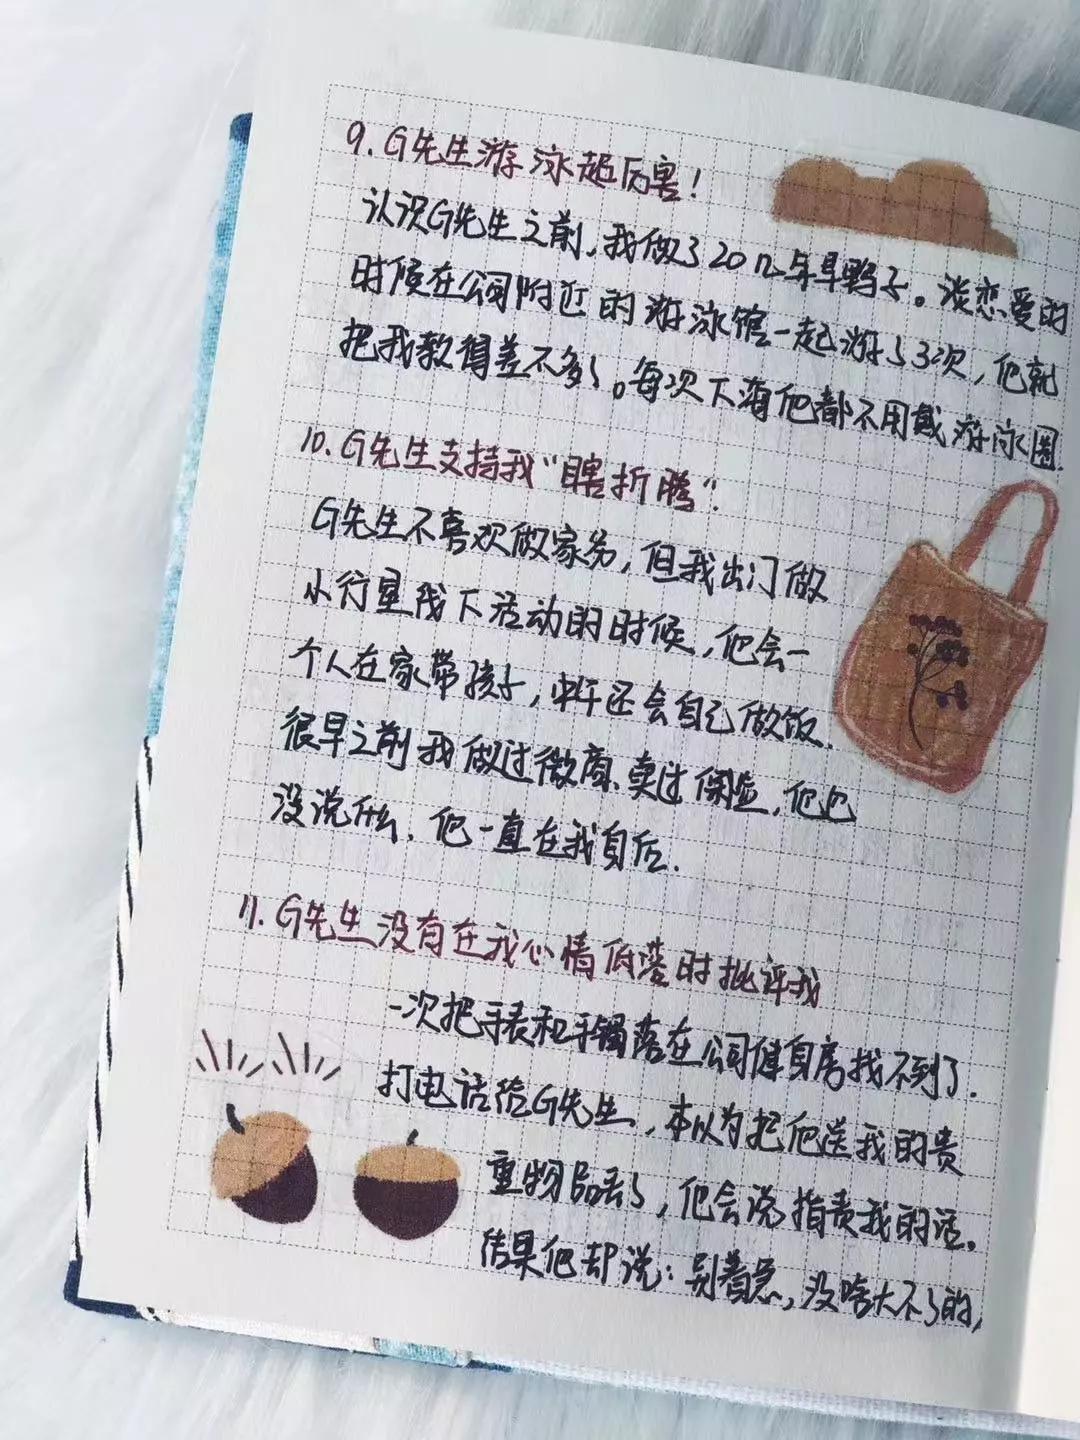 9. G先生游泳超厉害!
认识G先生之前,我做了20几年旱鸭子。谈恋爱的
时候在公司附近的游泳馆一起游了3次,他就
把我教得差不多了。每次下海他都不用戴游泳圈.
10. G先生支持我“瞎折腾”.
G先生不喜欢做家务,但我出门做
小行星线下活动的时候,他会一
个人在家带孩子,中午还会自己做饭.
很早之前我做过微商、卖过保险,他也
没说什么.他一直在我身后.
11. G先生没有在我心情低落时批评我
一次把手表和手镯落在公司健身房找不到了.
打电话给G先生,本以为把他送我的贵
重物品丢了,他会说指责我的话.
结果他却说:别着急,没啥大不了的,